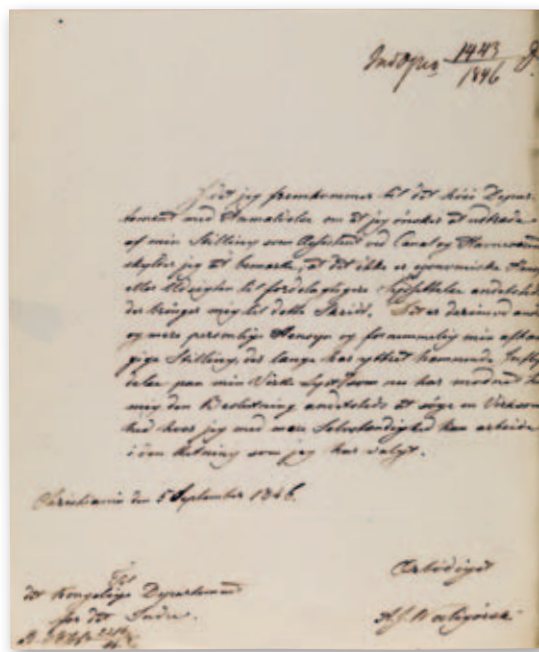 1443
1846
Idet jeg fremkommer til det høie Depar-
tement med Anmældelse om at jeg ønsker at udtræde
af min Stilling som Assistent ved Canal og Havnevæsenet
skylder jeg at bemærke, at det ikke er oeconomiske Hensyn
eller Udsigten til fordelagtigere andetsteds
der bringer mig til dette Skridt. Det er derimod andre
og mere personlige Hensyn og fornemmelig min afhæn-
gige Stilling, der længe har yttret hæmmende Indfly-
delse paa min Virke Lyst som nu har modnet hos
mig den Beslutning andetsteds at søge en Virksom-
hed hvor jeg med mere Selvstændighed kan arbeide
i den Retning som jeg har valgt.
Christiania den 5 September 1846.
Til
det Kongelige Departement
for det Indre.
Ærbødigst